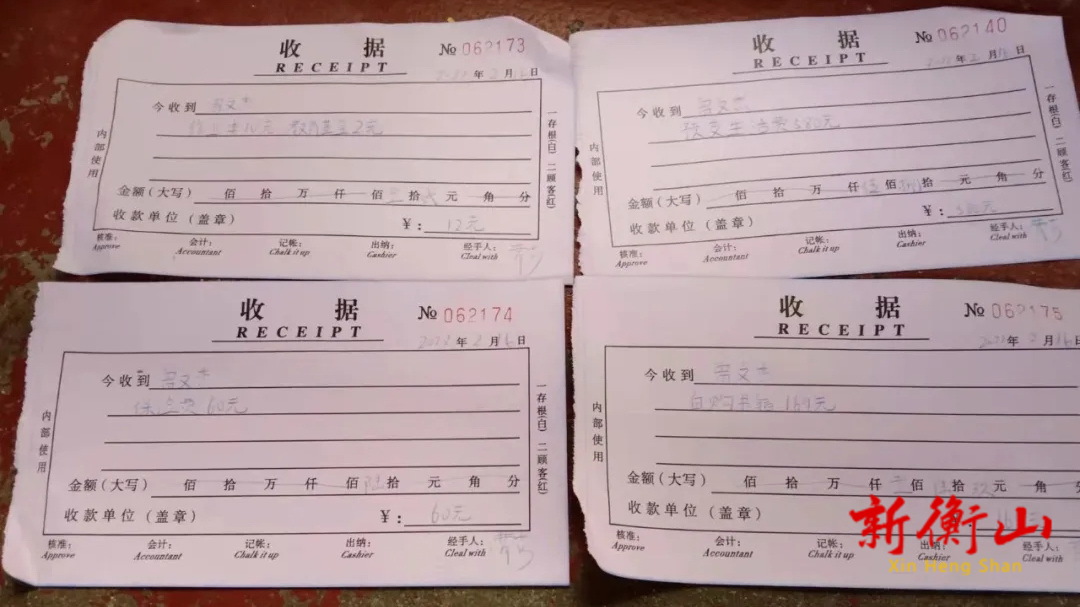 收 据
№ 062173
RECEIPT
年 2 月 16 日
今收到
12元
内部使用
一存根(白) 二顾客(红)
金额(大写) 佰 拾 万 仟 佰 拾 元 角 分
收款单位(盖章) ¥: 12元
核准: 会计: 记帐: 出纳: 经手人:
Approve Accountant Chalk it up Cashier Cleal with
收 据
№ 062140
RECEIPT
年 2 月 日
今收到
预支生活费580元
内部使用
一存根(白) 二顾客(红)
金额(大写) 佰 拾 万 仟 伍 佰 捌 拾 元 角 分
收款单位(盖章) ¥: 580元
核准: 会计: 记帐: 出纳: 经手人:
Approve Accountant Chalk it up Cashier Cleal with
收 据
№ 062174
RECEIPT
2022 年 2 月 16 日
今收到
60元
内部使用
一存根(白) 二顾客(红)
金额(大写) 佰 拾 万 仟 佰 陆 拾 元 角 分
收款单位(盖章) ¥: 60元
核准: 会计: 记帐: 出纳: 经手人:
Approve Accountant Chalk it up Cashier Cleal with
收 据
№ 062175
RECEIPT
2022 年 2 月 16 日
今收到
自购书籍 169元
内部使用
金额(大写) 佰 拾 万 仟 佰 拾 元 角
收款单位(盖章)
核准: 会计: 记帐: 出纳: 经手人:
Approve Accountant Chalk it up Cashier Cleal with
新衡山
Xin Heng Shan